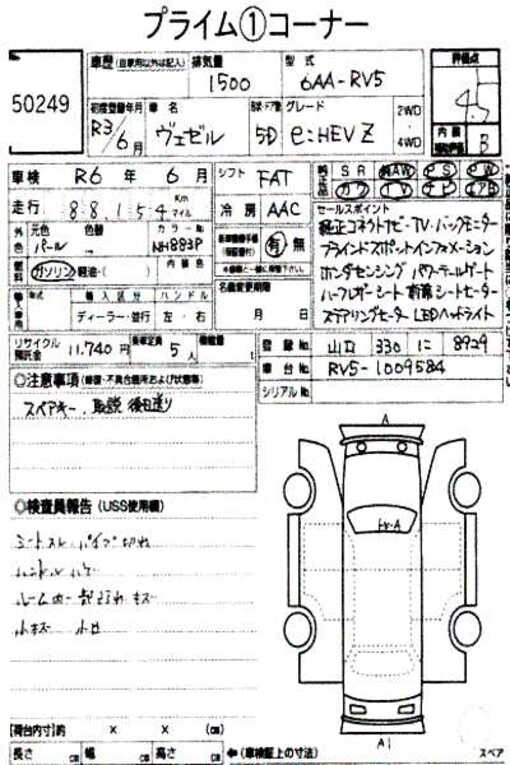 プライム①コーナー
50249
車歴(自家用以外は記入) 排気量 型式 評価点
1500 6AA-RV5 4.5
初度登録年月 車名 ドア数 グレード 2WD 4WD
R3/6月 ヴェゼル 5D e:HEV Z 内装 B
車検 R6年6月 シフト FAT
SR AAW PS PW
カワ TV ナビ
走行 88,154 Km マイル 冷房 AAC
セールスポイント
純正コネクトナビ・TV・バックモニター
ブラインドスポットインフォメーション
ホンダセンシング パワーテールゲート
ハーフレザーシート 前席シートヒーター
ステアリングヒーター LEDヘッドライト
外色 元色 色替 カラーNo.
パール NH883P 有 無
燃料 ガソリン・軽油・( ) 内装色
名義変更期限
月 日
輸入車 年式 輸入区分 ハンドル
ディーラー・並行 左・右
リサイクル預託金 11,740円 乗車定員 5人 積載量 t
登録No. 山口 330 に 8929
車台No. RV5-1009584
シリアルNo.
◎注意事項(修復・不具合箇所および状態等)
スペアキー、取説 後日送り
◎検査員報告(USS使用欄)
シートスレ パイプ切れ
ハンドルハゲ
ルーム内 キズ
小キズ 小凹
A
A1
【荷台内寸】約 × × (cm)
長さ cm 幅 cm 高さ cm ←(車検証上の寸法)
スペア